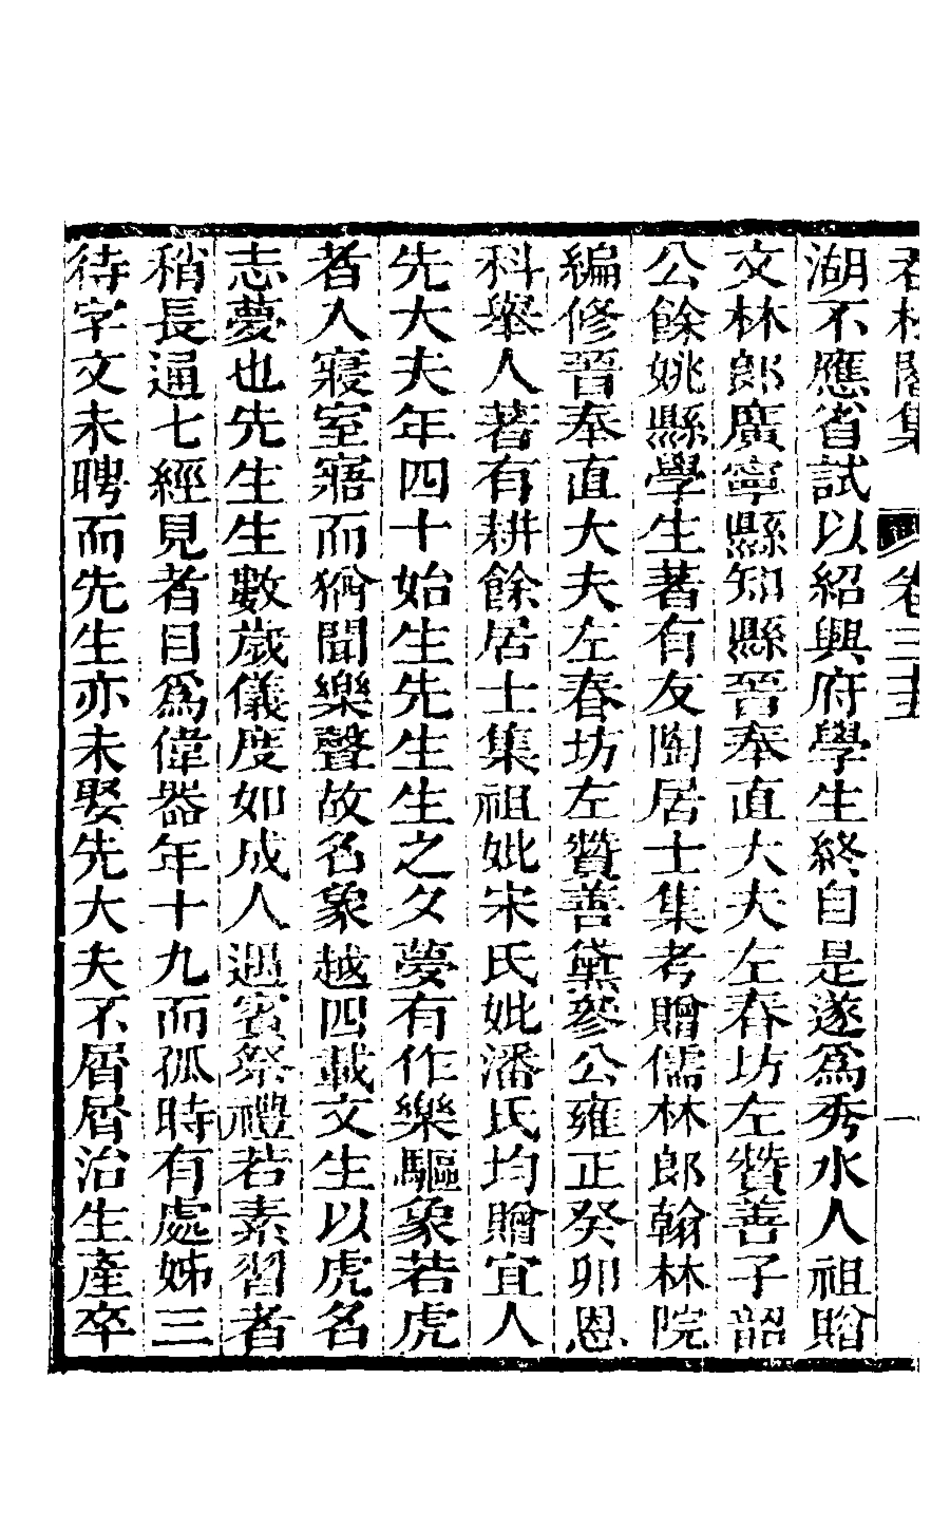 集 卷三十五 一
湖不應省試以紹興府學生終自是遂爲秀水人祖贈
文林郎廣寧縣知縣晉奉直大夫左春坊左贊善子韶
公餘姚縣學生著有友陶居士集考贈儒林郎翰林院
編修晉奉直大夫左春坊左贊善黛參公雍正癸卯恩
科舉人著有耕餘居士集祖妣宋氏妣潘氏均贈宜人
先大夫年四十始生先生生之夕夢有作樂驅象若虎
者入寢室寤而猶聞樂聲故名象越四載文生以虎名
志夢也先生生數歲儀度如成人遇賓祭禮若素習者
稍長通七經見者目爲偉器年十九而孤時有處姊三
待字文未聘而先生亦未娶先大夫不屑屑治生產卒